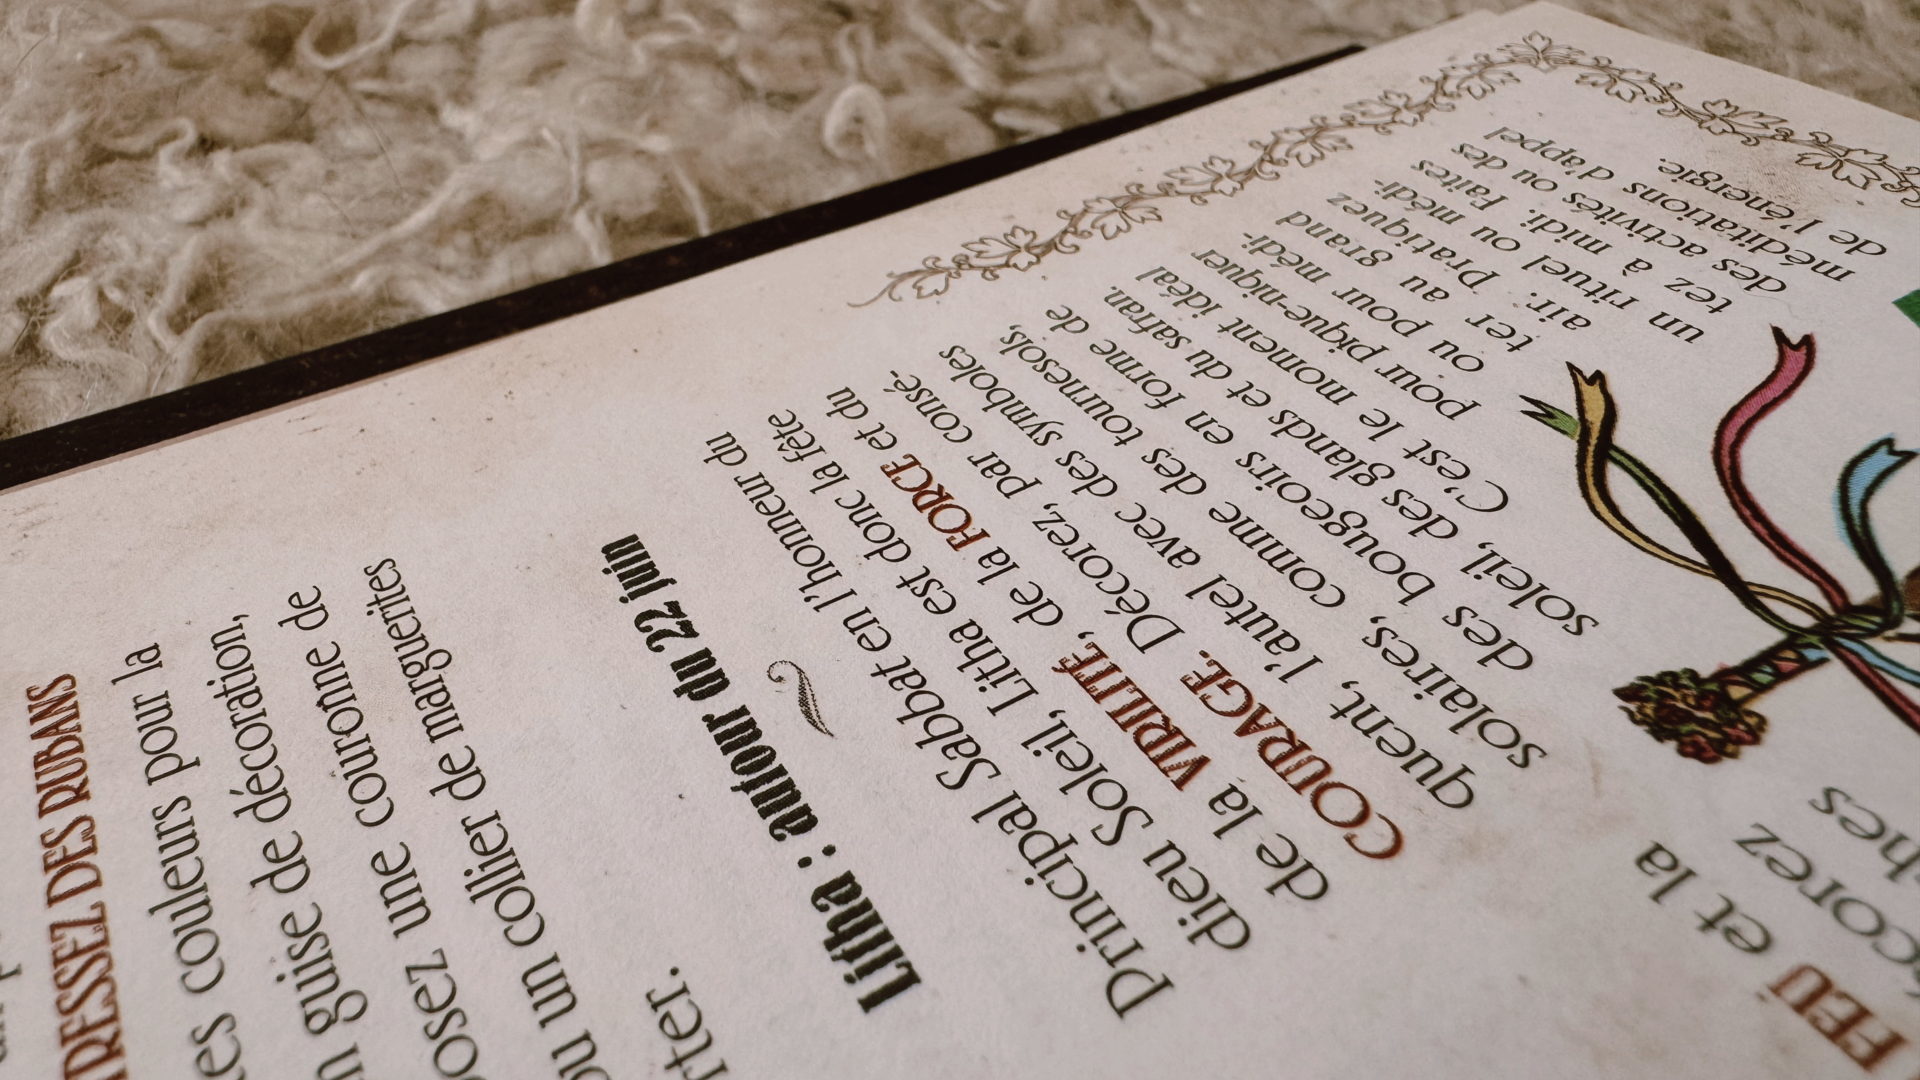 TRESSEZ DES RUBANS
es couleurs pour la
n guise de décoration,
osez une couronne de
ou un collier de marguerites
rter.
Litha : autour du 22 juin
Principal Sabbat en l'honneur du
dieu Soleil, Litha est donc la fête
de la VIRILITÉ, de la FORCE et du
COURAGE. Décorez, par consé-
quent, l'autel avec des symboles
solaires, comme des tournesols,
des bougeoirs en forme de
soleil, des glands et du safran.
C'est le moment idéal
pour pique-niquer
ou pour médi-
ter au grand
air. Pratiquez
un rituel ou médi-
tez à midi. Faites
des activités ou des
méditations d'appel
de l'énergie.
FEU et la
écorez
ches